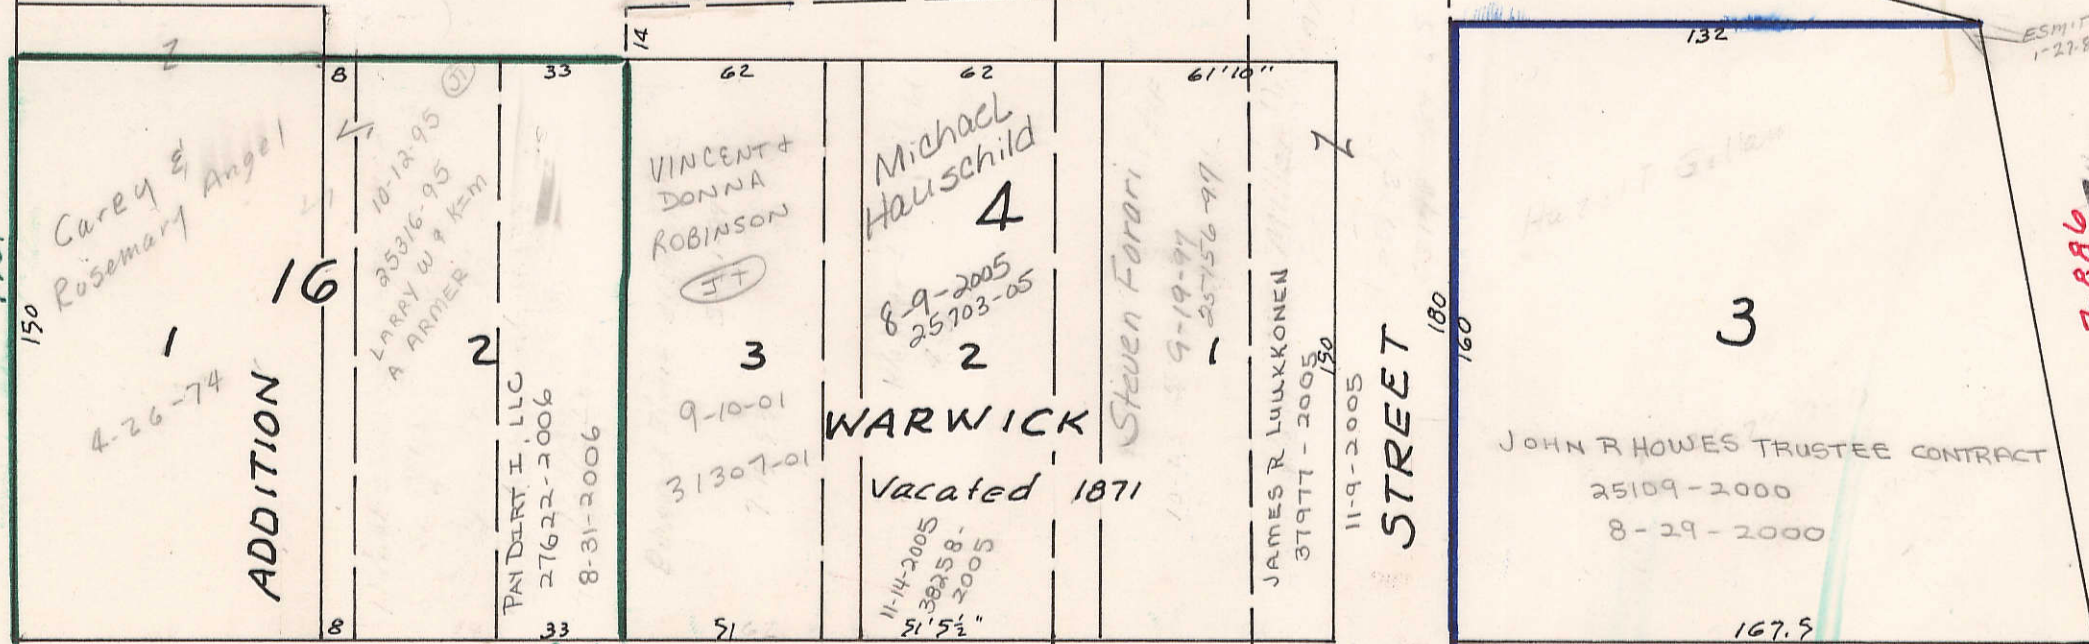 14
8
33
62
62
61'10"
132
ESMT
Z
Carey &
Rosemary Angel
16
1
150
4-26-74
ADDITION
8
JT
10-12-95
25316-95
LARRY W & KIM
A ARMER
2
PAY DIRT I, LLC
27622-2006
8-31-2006
33
VINCENT &
DONNA
ROBINSON
JT
3
9-10-01
31307-01
51
Michael
Hauschild
4
8-9-2005
25703-05
2
WARWICK
Vacated 1871
11-14-2005
38258-
2005
51'5½"
Steven Forari
9-19-97
25756-97
1
JAMES R LUUKKONEN
37977-2005
11-9-2005
150
Z
STREET
180
160
3
JOHN R HOWES TRUSTEE CONTRACT
25109-2000
8-29-2000
167.5